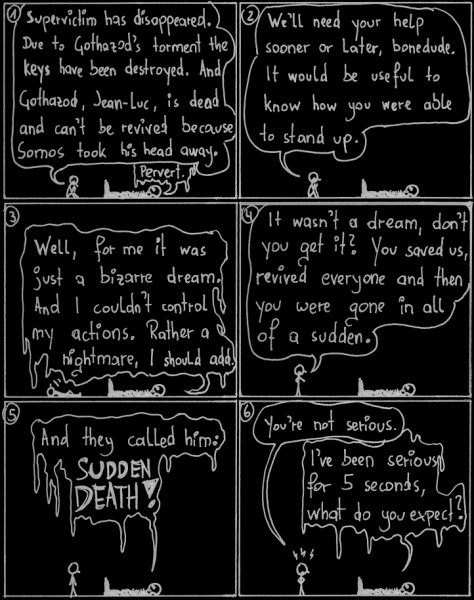 1
Supervictim has disappeared.
Due to Gothazod's torment the
keys have been destroyed. And
Gothazod, Jean-Luc, is dead
and can't be revived because
Somos took his head away.
Pervert.
2
We'll need your help
sooner or later, bonedude.
It would be useful to
know how you were able
to stand up.
3
Well, for me it was
just a bizarre dream.
And I couldn't control
my actions. Rather a
nightmare, I should add.
4
It wasn't a dream, don't
you get it? You saved us,
revived everyone and then
you were gone in all
of a sudden.
5
And they called him:
SUDDEN
DEATH!
6
You're not serious.
I've been serious
for 5 seconds,
what do you expect?